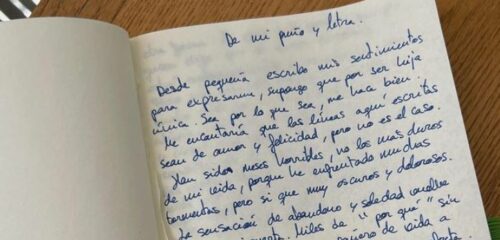 De mi puño y letra.
Desde pequeña escribo mis sentimientos
para expresarme, supongo que por ser hija
única. Sea por lo que sea, me hace bien.
Me encantaría que las líneas aquí escritas
sean de amor y felicidad, pero no es el caso.
Han sido meses horribles, no los más duros
de mi vida, porque he enfrentado muchas
tormentas, pero si que muy oscuros y dolorosos.
La sensación de abandono y soledad
Miles de "por qué" sin
de vida a